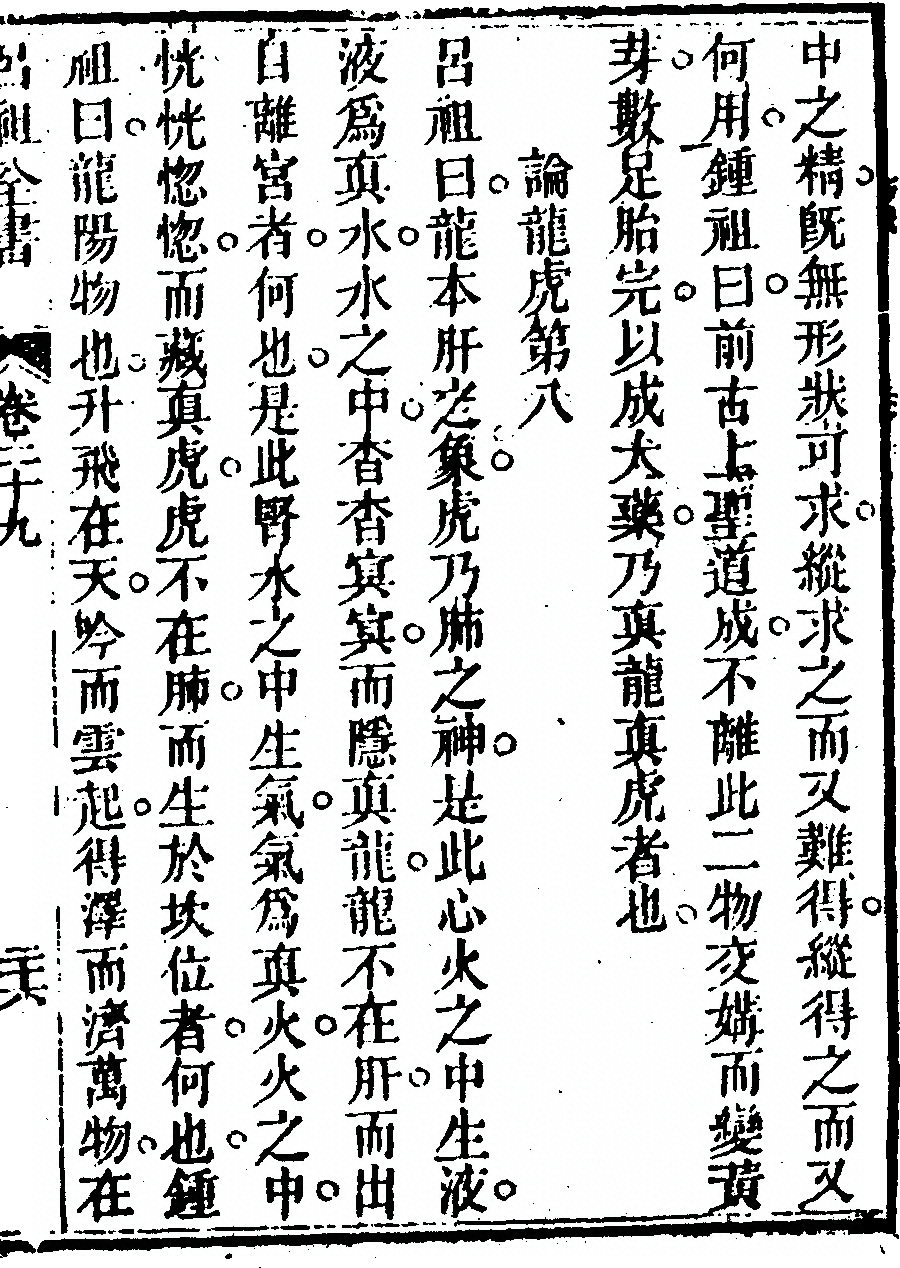 中之精既無形狀可求縱求之而又難得縱得之而又
何用鍾祖曰前古上聖道成不離此二物交媾而變黃
芽數足胎完以成大藥乃真龍真虎者也
論龍虎第八
呂祖曰龍本肝之象虎乃肺之神是此心火之中生液
液爲真水水之中杳杳冥冥而隱真龍龍不在肝而出
自離宮者何也是此腎水之中生氣氣爲真火火之中
恍恍惚惚而藏真虎虎不在肺而生於坎位者何也鍾
祖曰龍陽物也升飛在天吟而雲起得澤而濟萬物在
呂祖全書 卷二十九 二六